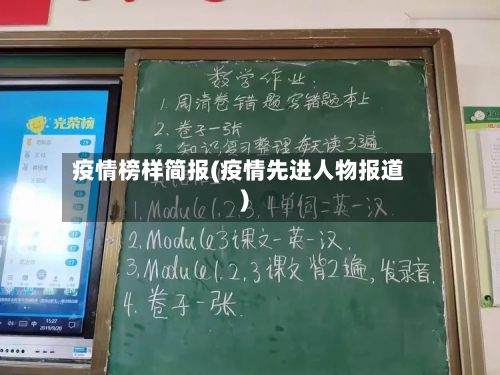 光荣榜
数学作业:
1.周清卷错题写错题本上
2.卷子一张
3.知识复习整理每天读3遍
疫情榜样简报(疫情先进人物报道
)
1.Module1.2.3.4单词=英一汉
2.Module3课文一英一汉.
3.Module1.2.3课文背2遍,发录音.
4.卷子一张.
15:27
2019/9/20